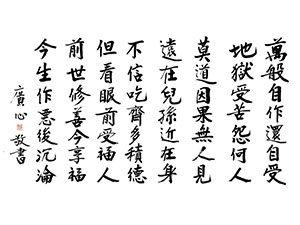 萬般自作還自受
地獄受苦怨何人
莫道因果無人見
遠在兒孫近在身
不信吃齋多積德
但看眼前受福人
前世修善今享福
今生作惡後沉淪
廣心敬書